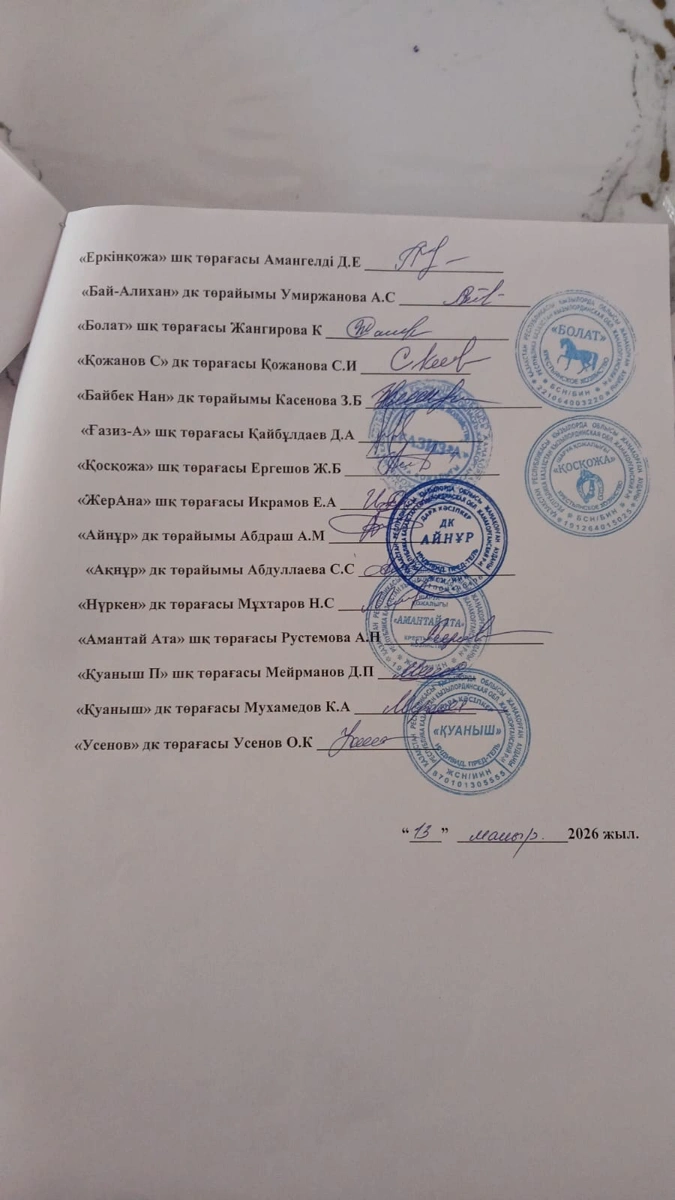 «Еркінқожа» шқ төрағасы Амангелді Д.Е
«Бай-Алихан» дк төрайымы Умиржанова А.С
«Болат» шқ төрағасы Жангирова К
«Қожанов С» дк төрағасы Қожанова С.И
«Байбек Нан» дк төрайымы Касенова З.Б
«Ғазиз-А» шқ төрағасы Қайбұлдаев Д.А
«Қосқожа» шқ төрағасы Ергешов Ж.Б
«ЖерАна» шқ төрағасы Икрамов Е.А
«Айнұр» дк төрайымы Абдраш А.М
«Ақнұр» дк төрайымы Абдуллаева С.С
«Нүркен» дк төрағасы Мұхтаров Н.С
«Амантай Ата» шқ төрағасы Рустемова А.Н
«Қуаныш П» шқ төрағасы Мейрманов Д.П
«Қуаныш» дк төрағасы Мухамедов К.А
«Усенов» дк төрағасы Усенов О.К
“13” мамыр. 2026 жыл.
«БОЛАТ»
КРЕСТЬЯНСКОЕ ХОЗЯЙСТВО
БСН/БИН
«ҚОСҚОЖА»
БСН/БИН
191264015025
ДК
АЙНҰР
«АМАНТАЙ АТА»
«ҚУАНЫШ»
ИНДИВИД. ПРЕД-ТЕЛЬ
ЖСН/ИИН
870101305555